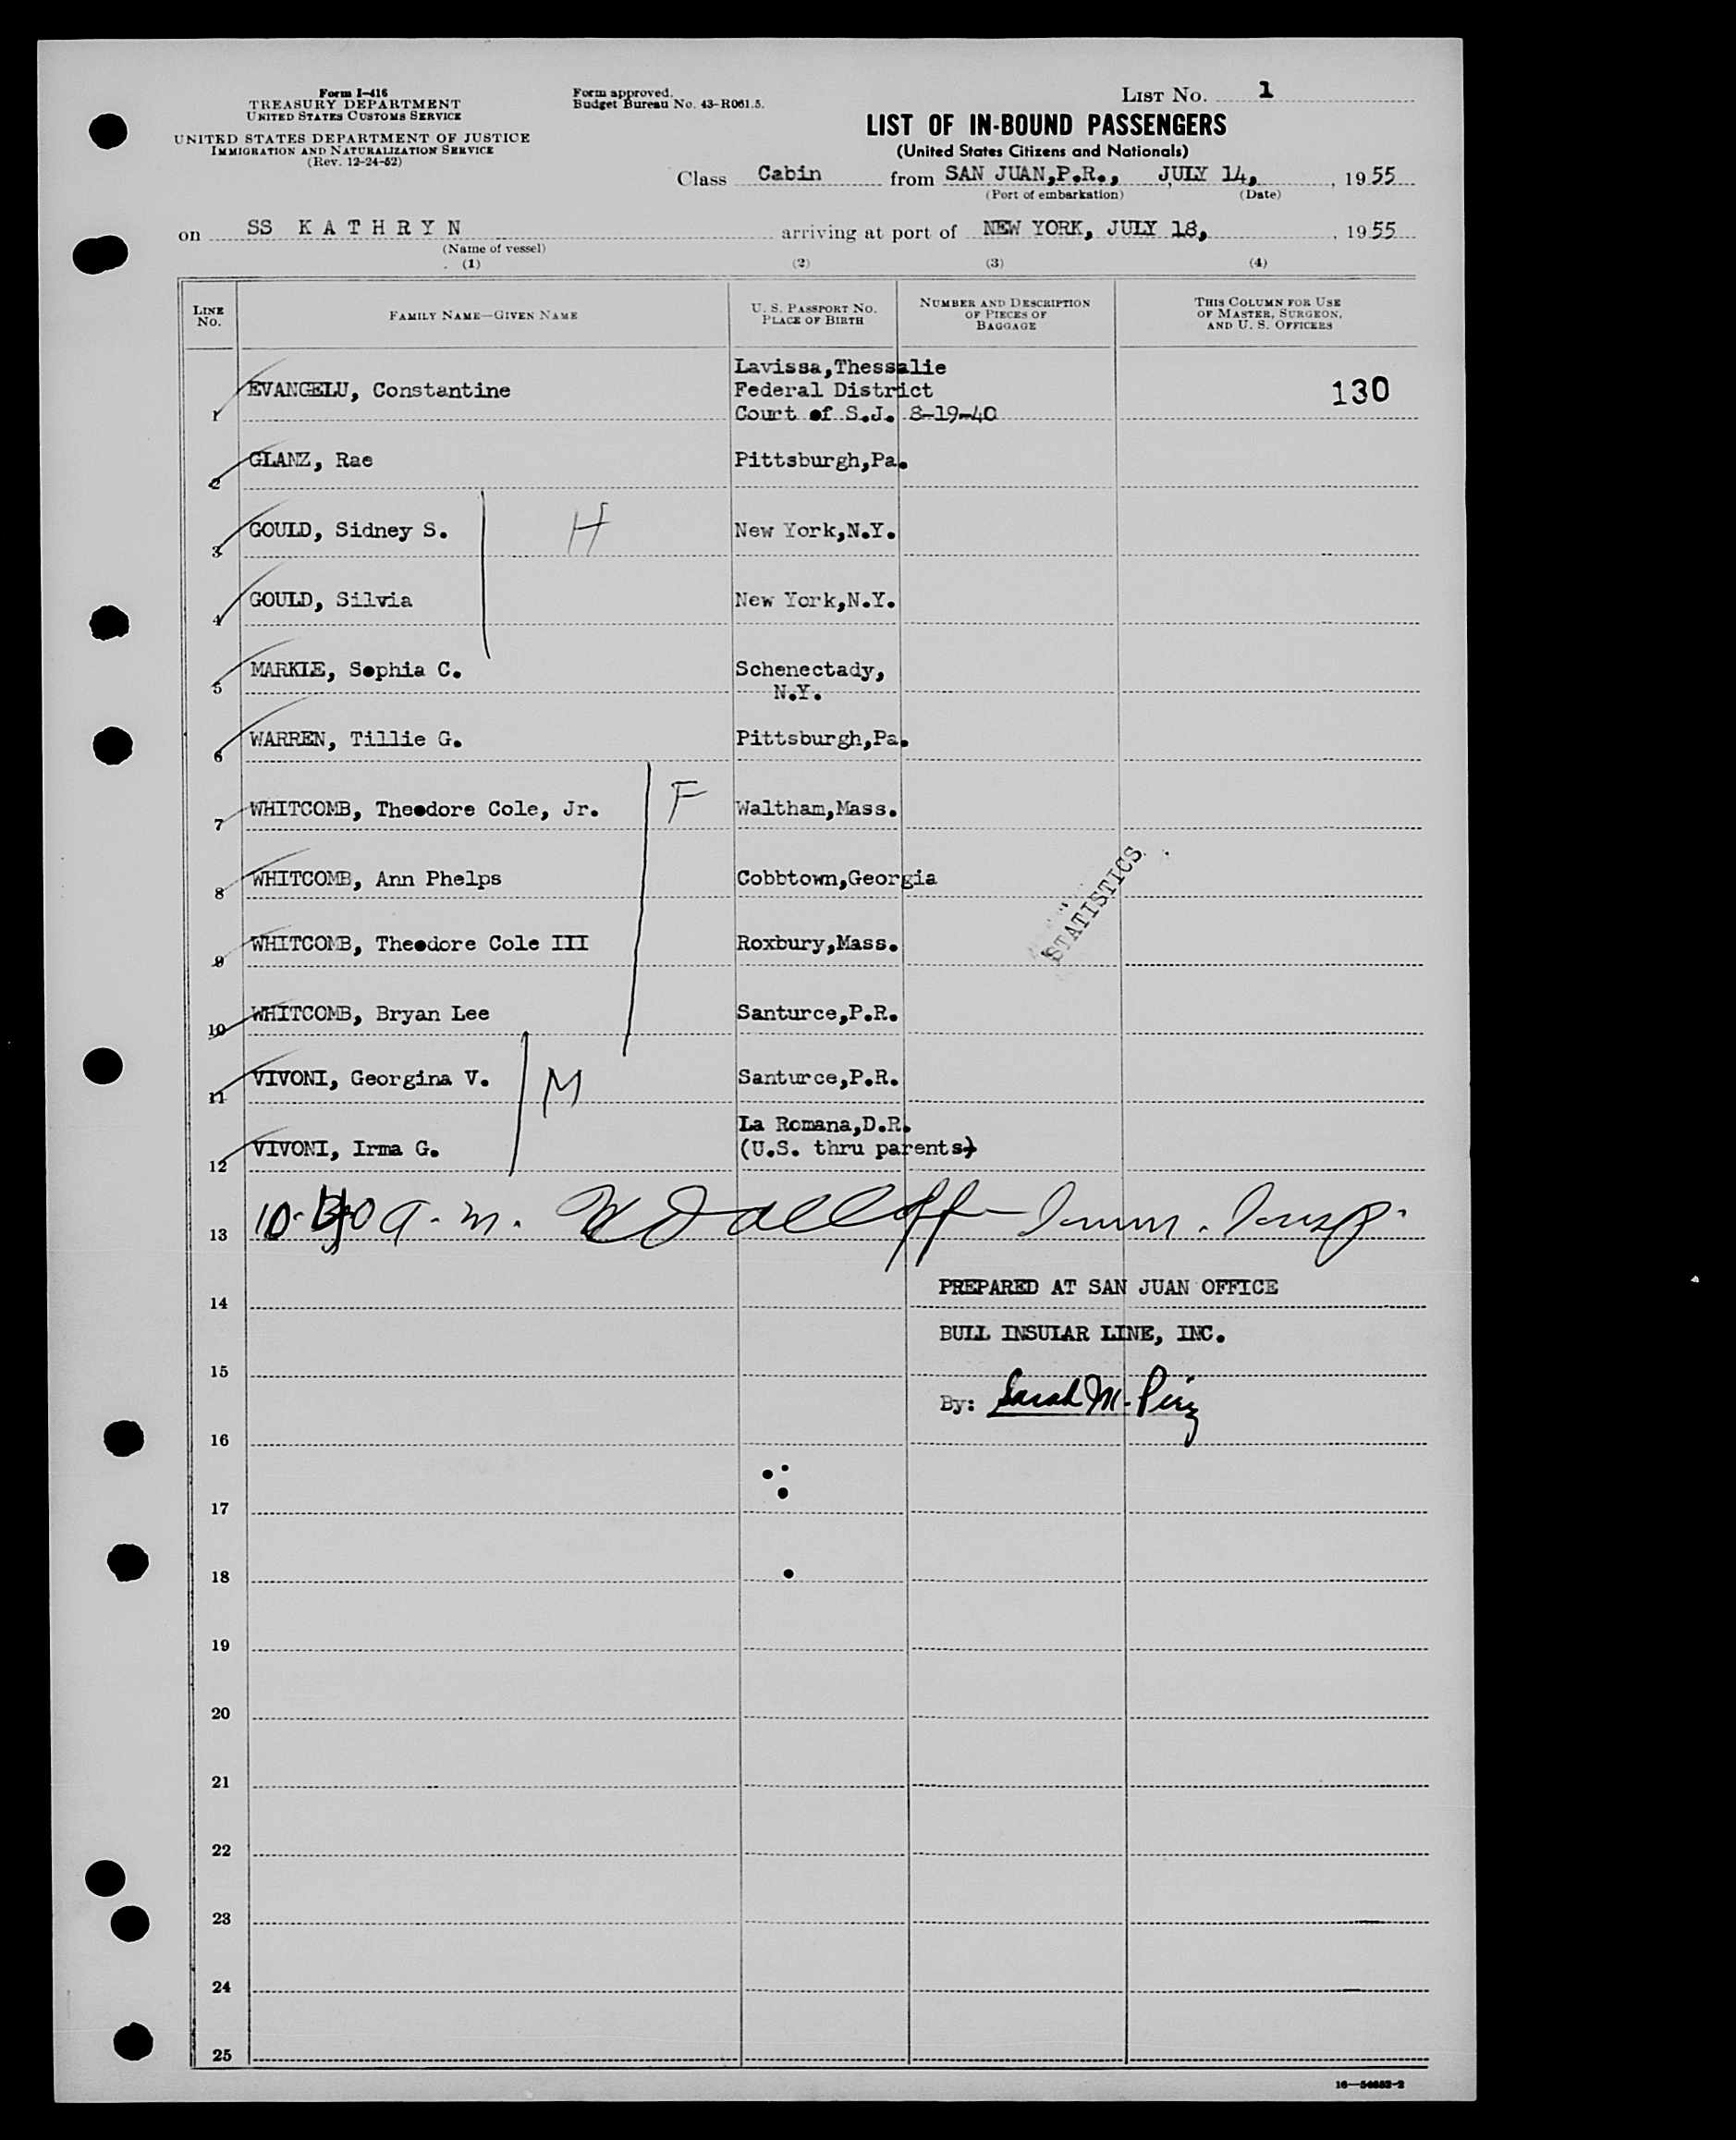 Form I-416
TREASURY DEPARTMENT
UNITED STATES CUSTOMS SERVICE
UNITED STATES DEPARTMENT OF JUSTICE
IMMIGRATION AND NATURALIZATION SERVICE
(Rev. 12-24-52)
Form approved.
Budget Bureau No. 43-R061.5.
LIST NO. 1
LIST OF IN-BOUND PASSENGERS
(United States Citizens and Nationals)
Class Cabin from SAN JUAN,P.R., JULY 14, , 1955
(Port of embarkation) (Date)
on SS KATHRYN arriving at port of NEW YORK, JULY 18, , 1955
(Name of vessel)
(1) (2) (3) (4)
LINE NO. FAMILY NAME—GIVEN NAME U. S. PASSPORT NO. PLACE OF BIRTH NUMBER AND DESCRIPTION OF PIECES OF BAGGAGE THIS COLUMN FOR USE OF MASTER, SURGEON, AND U. S. OFFICERS
Lavissa,Thessalie
1 EVANGELU, Constantine Federal District 130
Court of S.J. 8-19-40
2 GLANZ, Rae Pittsburgh,Pa.
3 GOULD, Sidney S. H New York,N.Y.
4 GOULD, Silvia New York,N.Y.
5 MARKLE, Sophia C. Schenectady,
N.Y.
6 WARREN, Tillie G. Pittsburgh,Pa.
7 WHITCOMB, Theodore Cole, Jr. F Waltham,Mass.
8 WHITCOMB, Ann Phelps Cobbtown,Georgia
STATISTICS
9 WHITCOMB, Theodore Cole III Roxbury,Mass.
10 WHITCOMB, Bryan Lee Santurce,P.R.
11 VIVONI, Georgina V. M Santurce,P.R.
La Romana,D.R.
12 VIVONI, Irma G. (U.S. thru parents)
13 a.m. Imm. Insp.
PREPARED AT SAN JUAN OFFICE
14
BULL INSULAR LINE, INC.
15
By: Sarah M.
16
17
18
19
20
21
22
23
24
25